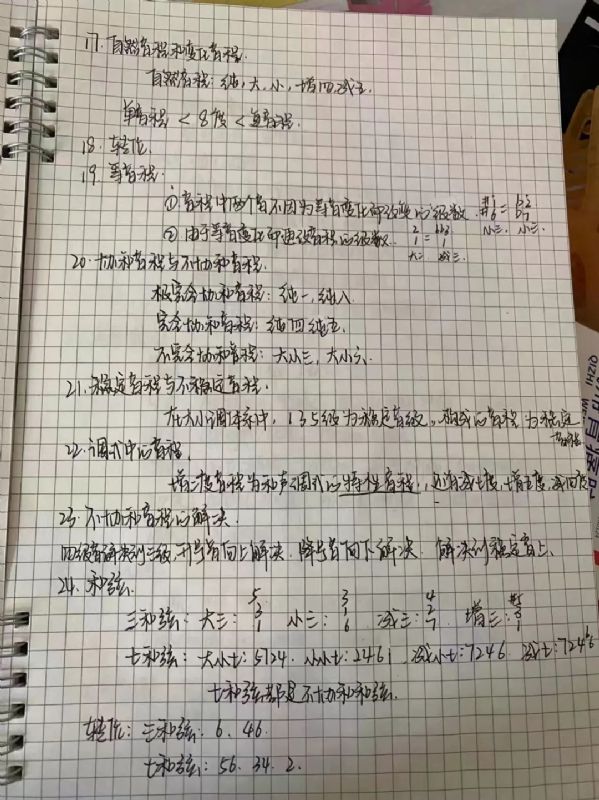 17. 自然音程和变化音程.
自然音程: 纯, 大, 小, 增四, 减五.
单音程 < 8度 < 复音程.
18. 转位.
19. 等音程.
① 音程中两个音不因为等音变化而改变心级数. #1 #6 = b2 b7 小三. 小三.
② 由于等音变化而更改音程心级数.. 2 1 = bb3 1 大二 减三.
20. 协和音程与不协和音程.
极完全协和音程: 纯一, 纯八
完全协和音程: 纯四 纯五.
不完全协和音程: 大小三, 大小六.
21. 稳定音程与不稳定音程.
在大小调体系中, 1 3 5级为稳定音级。构成心音程为稳定
音程
22. 调式中心音程.
增二度音程为和声调式心特性音程, 还有减七度, 增五度, 减四度
23. 不协和音程心解决.
四级音解决到三级, 升号音向上解决. 降号音向下解决. 解决到稳定音上.
24. 和弦.
三和弦: 大三: 5 3 1 小三: 3 1 6 减三: 4 2 7 增三: #5 3 1
七和弦: 大小七: 5724. 小小七: 2461 减小七: 7246 减七: 724b6
七和弦都是不协和和弦.
转位: 三和弦: 6. 46.
七和弦: 56. 34. 2.